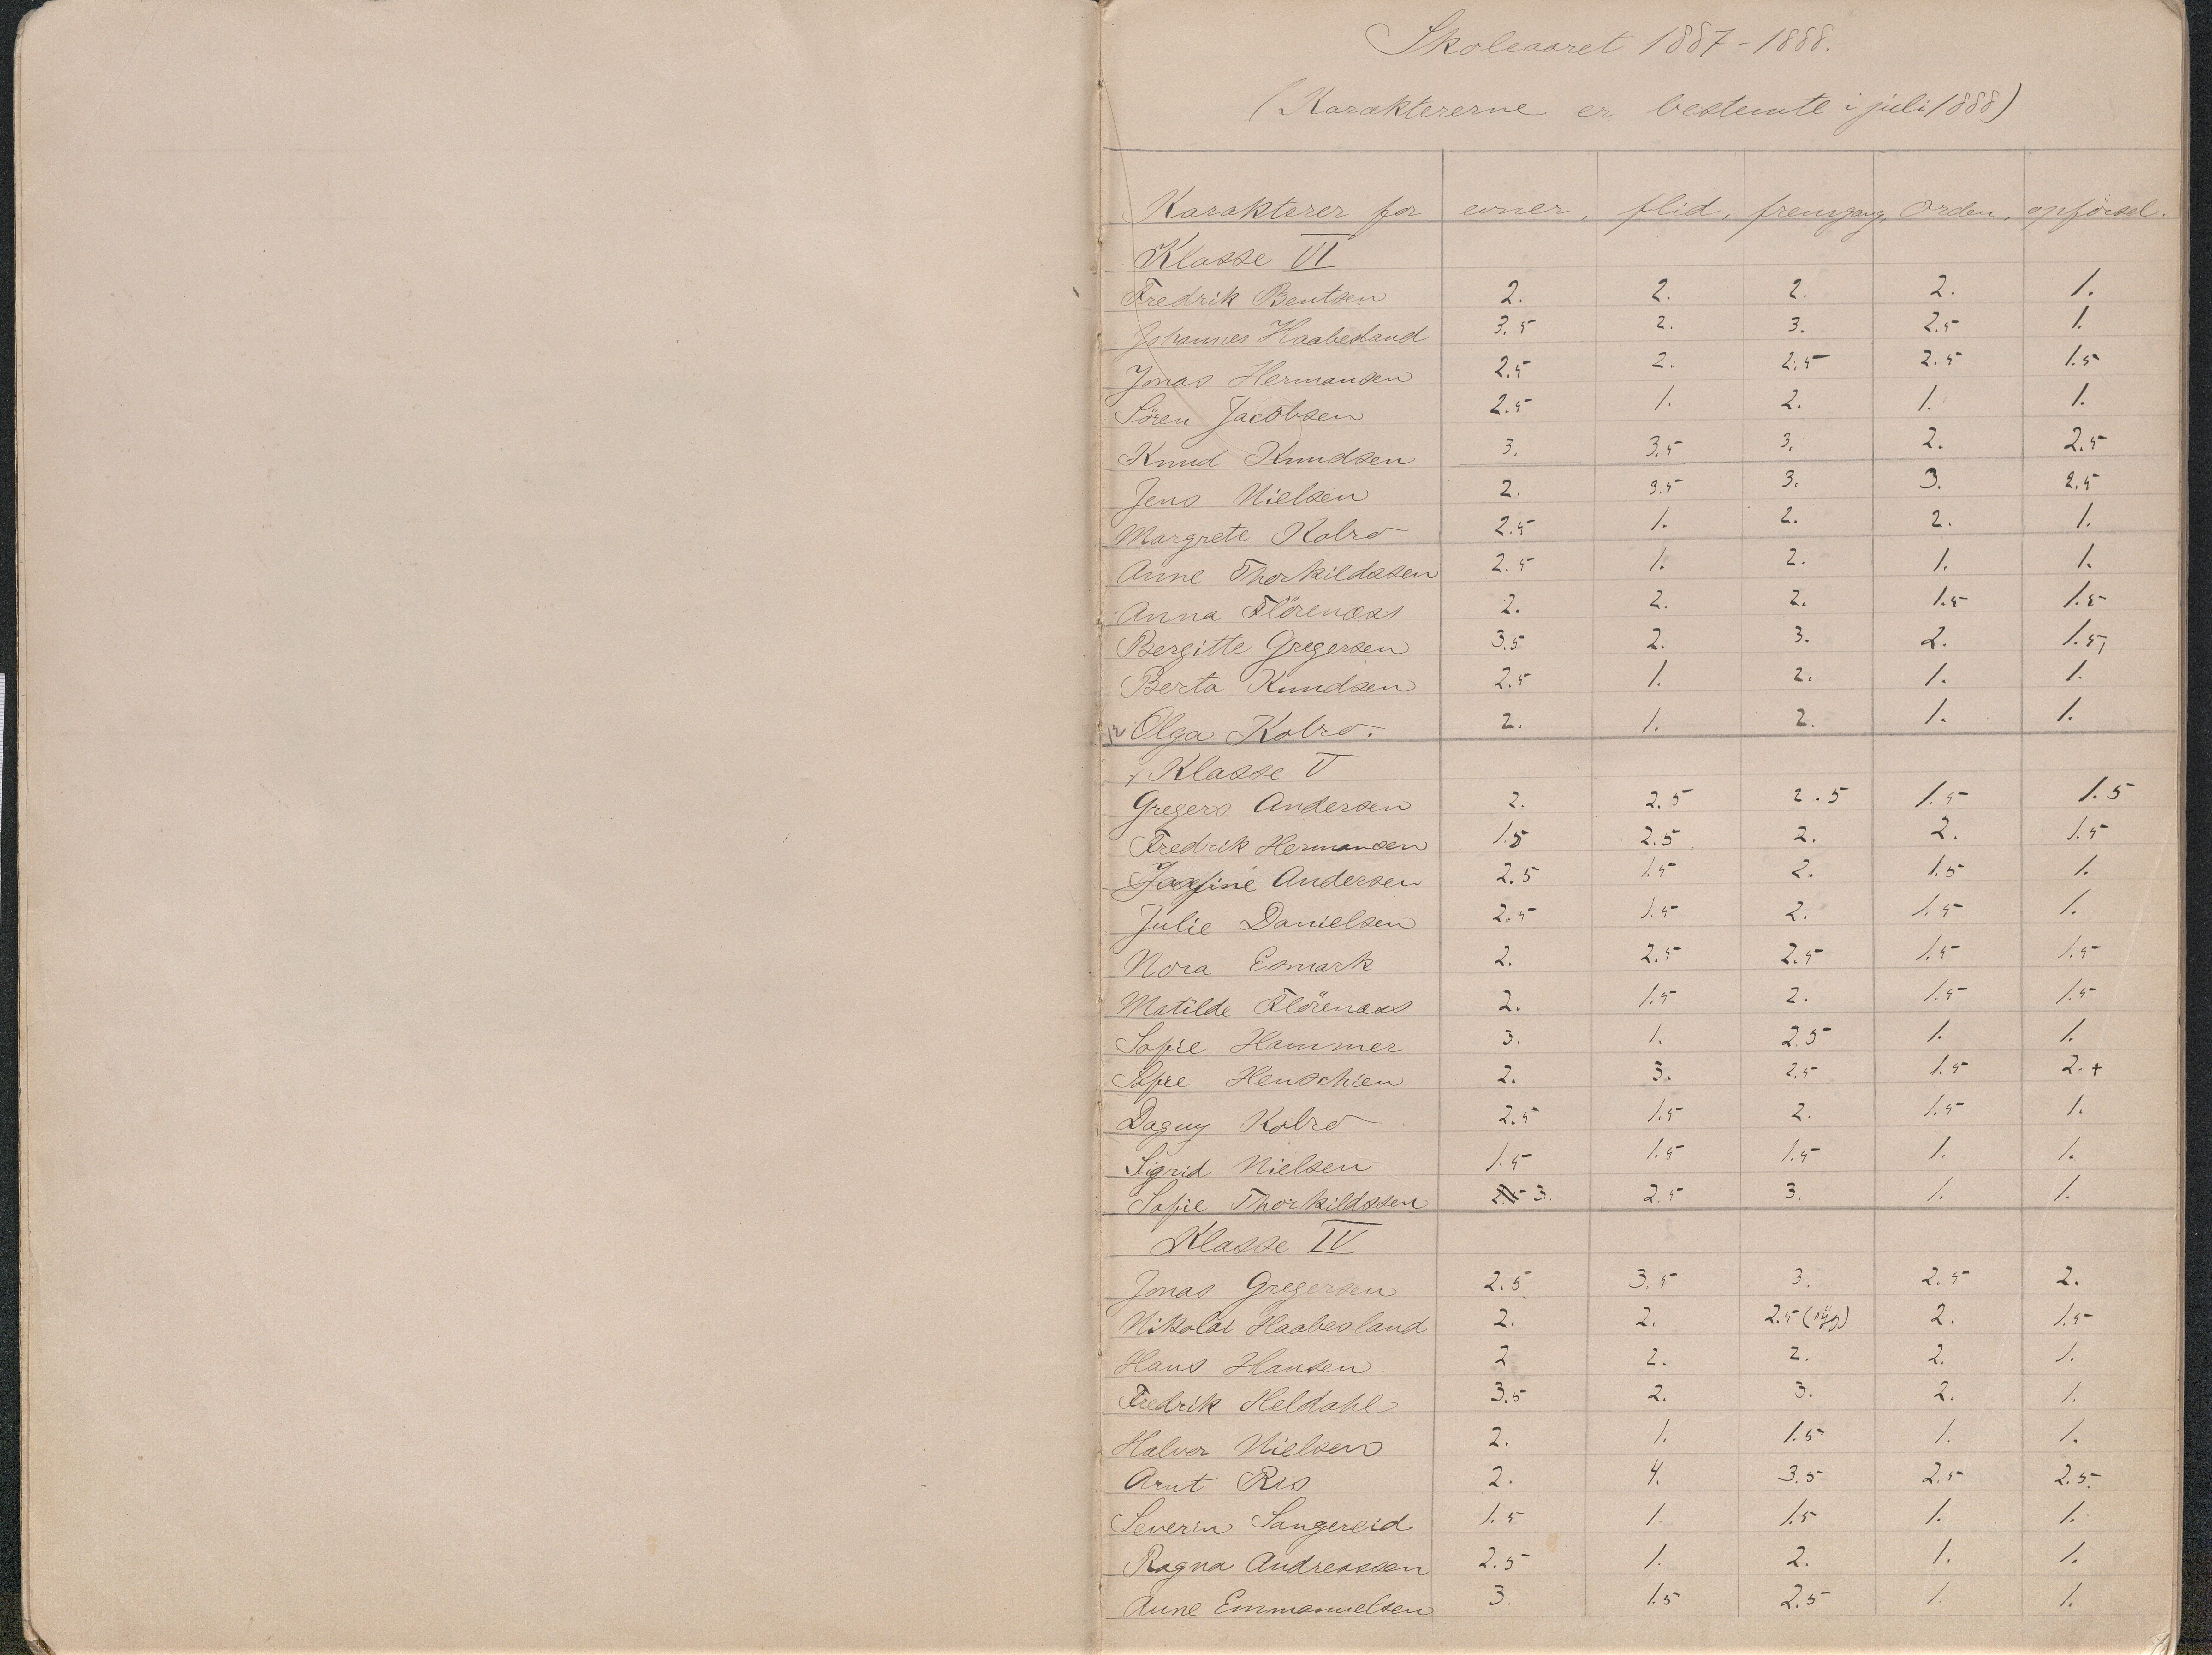 Skoleaaret 1887-1888.
(Karaktererne er bestemte i juli 1888)
Karakterer for evner, flid, fremgang, orden, opförsel.
Klasse VI
Fredrik Bentsen 2. 2. 2. 2. 1.
Johannes Haabesland 3.5 2. 3. 2.5 1.
Jonas Hermansen 2.5 2. 2.5 2.5 1.5
Sören Jacobsen 2.5 1. 2. 1. 1.
Knud Knudsen 3. 3.5 3. 2. 2.5
Jens Nielsen 2. 3.5 3. 3. 2.5
Margrete Kobro 2.5 1. 2. 2. 1.
Anne Thorkildssen 2.5 1. 2. 1. 1.
Anna Flörenæss 2. 2. 2. 1.5 1.5
Bergitte Gregersen 3.5 2. 3. 2. 1.5
Berta Knudsen 2.5 1. 2. 1. 1.
12 Olga Kobro. 2. 1. 2. 1. 1.
Klasse V
Gregers Andersen 2. 2.5 2.5 1.5 1.5
Fredrik Hermansen 1.5 2.5 2. 2. 1.5
Josefine Andersen 2.5 1.5 2. 1.5 1.
Julie Danielsen 2.5 1.5 2. 1.5 1.
Nora Esmark 2. 2.5 2.5 1.5 1.5
Matilde Flörenæss 2. 1.5 2. 1.5 1.5
Sofie Hammer 3. 1. 2.5 1. 1.
Sofie Henschien 2. 3. 2.5 1.5 2.+
Dagny Kobro 2.5 1.5 2. 1.5 1.
Sigrid Nielsen 1.5 1.5 1.5 1. 1.
Sofie Thorkildssen 3. 2.5 3. 1. 1.
Klasse IV
Jonas Gregersen 2.5 3.5 3. 2.5 2.
Nikolai Haabesland 2. 2. 2.5 2. 1.5
Hans Hansen 2 2. 2. 2. 1.
Fredrik Heldahl 3.5 2. 3. 2. 1.
Halvor Nielsen 2. 1. 1.5 1. 1.
Arnt Ris 2. 4. 3.5 2.5 2.5
Severin Sangereid 1.5 1. 1.5 1. 1.
Ragna Andreassen 2.5 1. 2. 1. 1.
Anne Emmanuelsen 3. 1.5 2.5 1. 1.